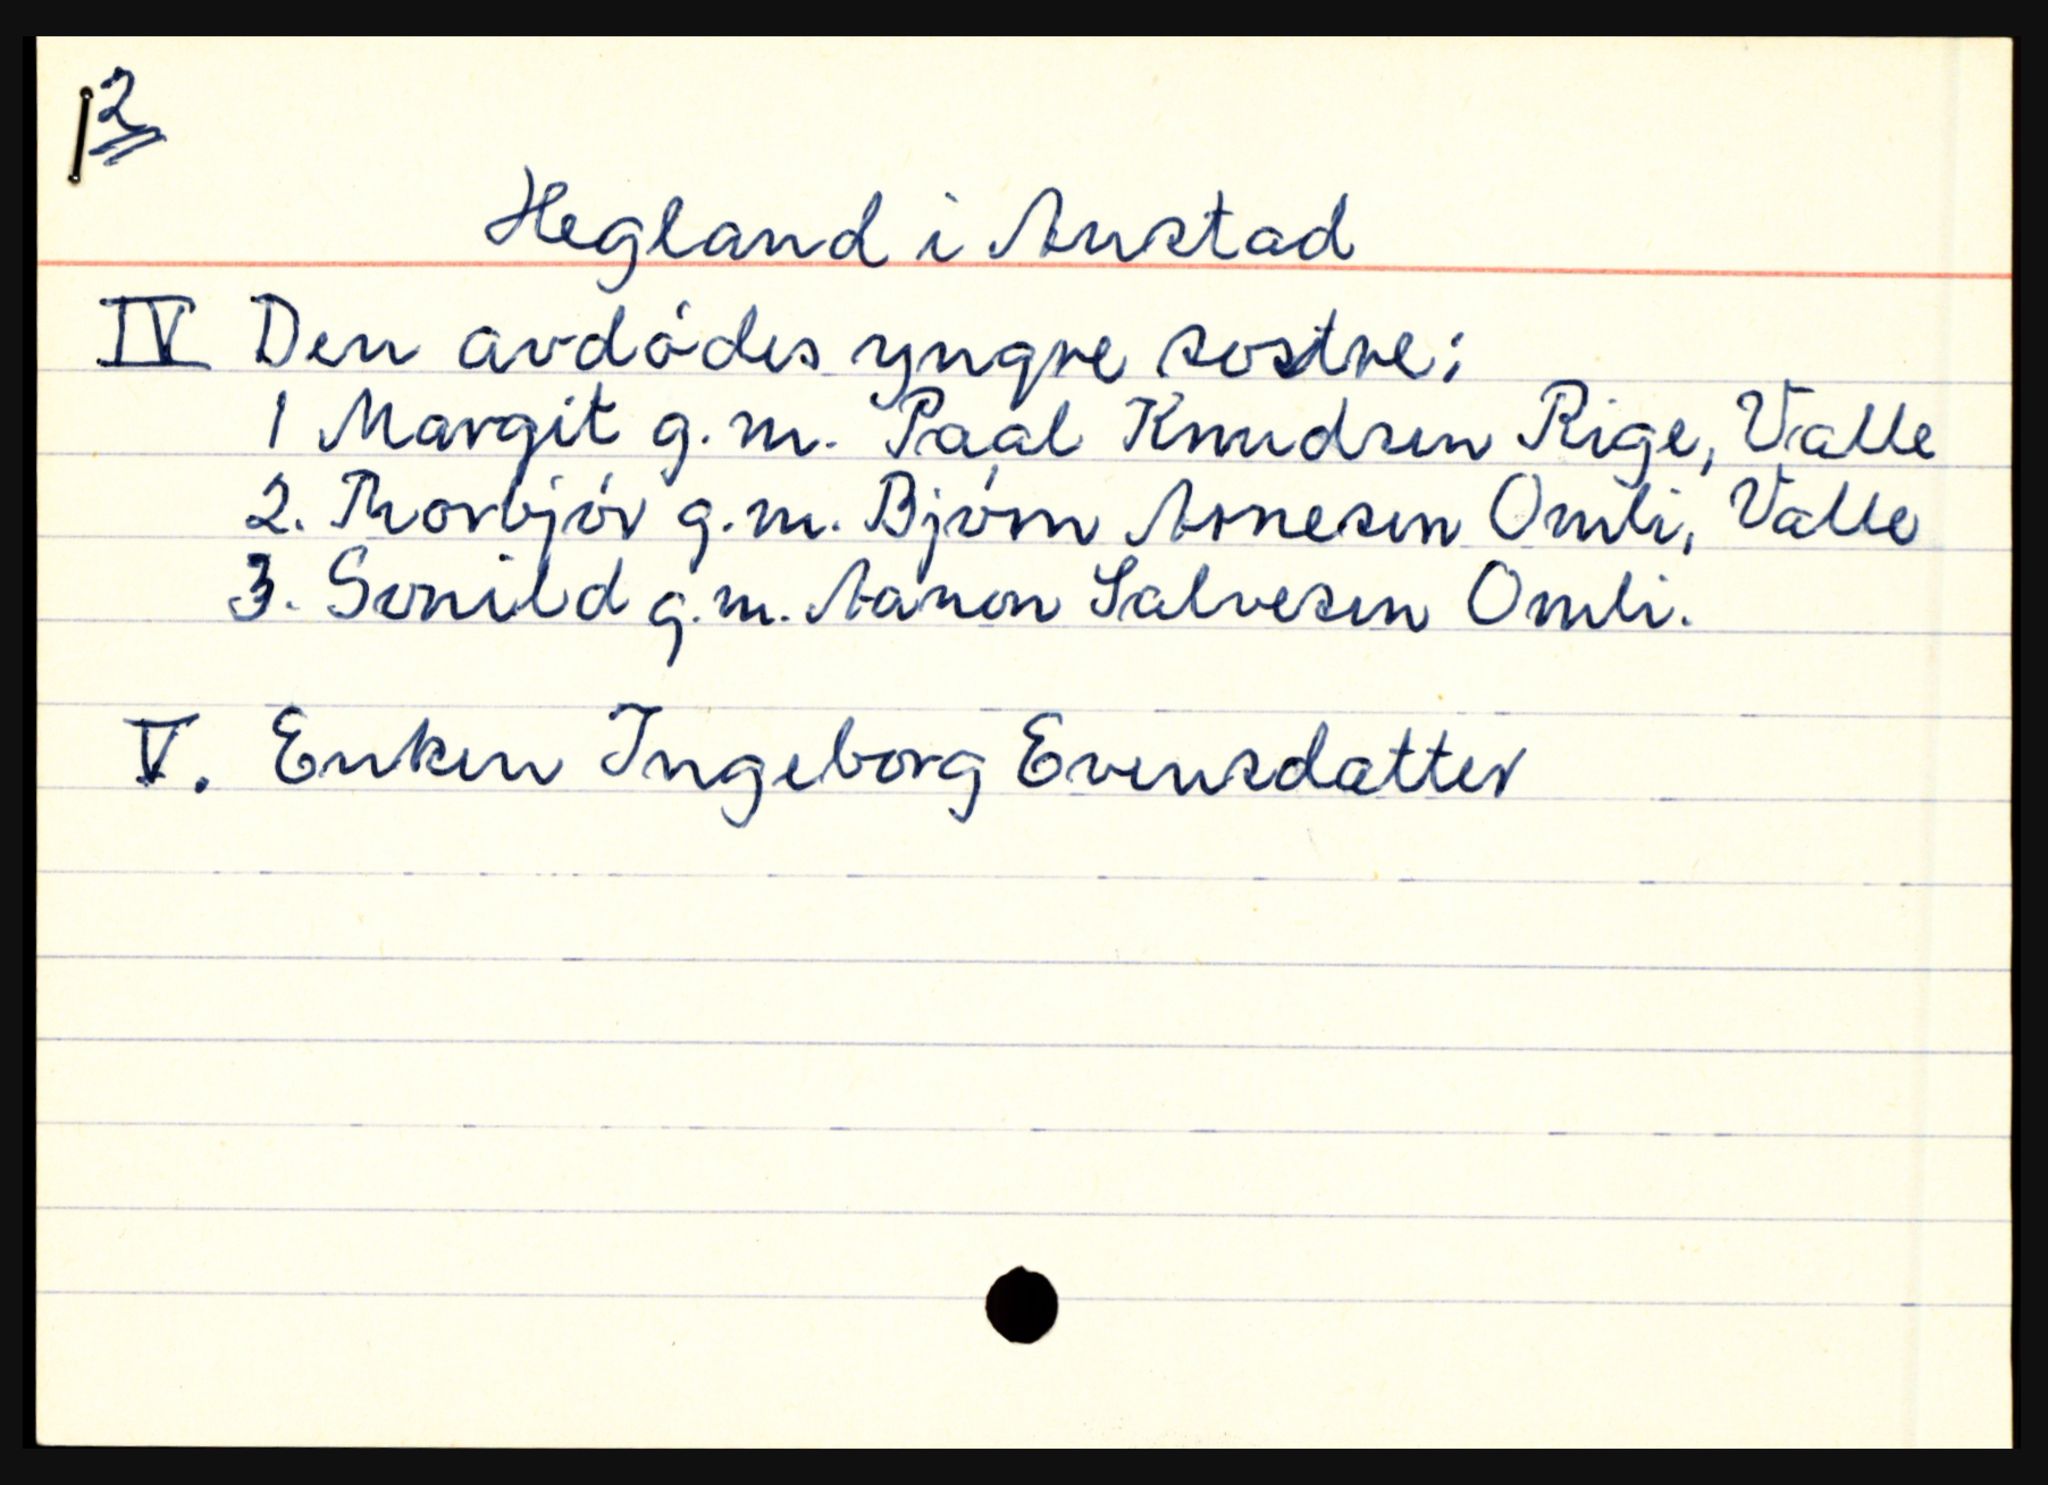 2
Hegland i Austad
IV Den avdódes yngre sostre:
1 Margit g.m. Paal Knudsen Rige, Valle
2. Thorbjór g.m. Bjórn Arnesen Omli, Valle
3. Svnild g.m. Aanon Salvesen Omli.
V. Enken Ingeborg Evensdatter